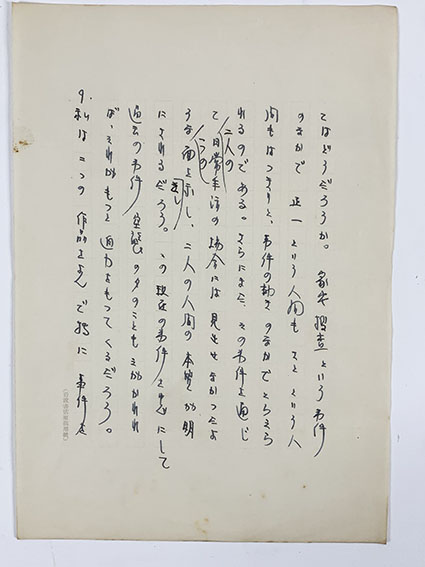 てはどうだろうか。家宅捜査という事件
のなかで正一という人間も てと という人
間もはつきりと、事件の動きのなかでとらえら
れるのである。さらにまた、その事件を通じ
二人の
て日常生活の場合には見せなかつたよ
うな面を示し、二人の人間の本質が明
にされるだろう。この現在の事件を もとにして
過去の事件 空襲の夕のこともえがかれれ
ば、それがもつと迫力をもつてくるだろう。
9.私は二つの作品をよんで特に事件を